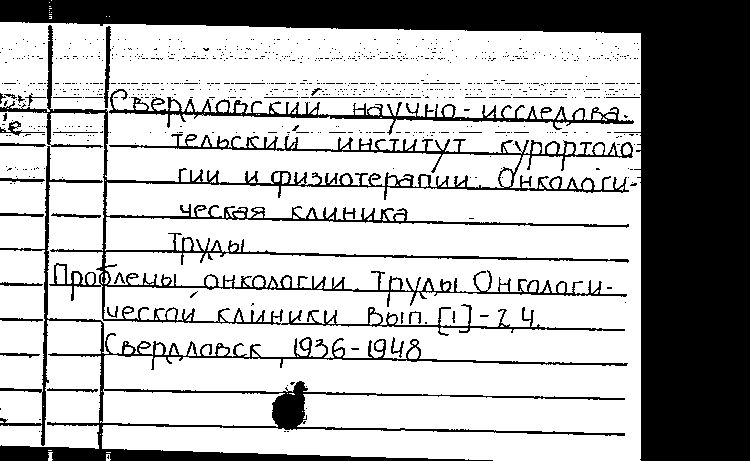 Свердловский научно-исследова-
тельский институт курортоло-
гии и физиотерапии. Онкологи-
ческая клиника
Труды
Проблемы онкологии. Труды Онкологи-
ческой клиники Вып. [1]-2, 4.
Свердловск, 1936-1948